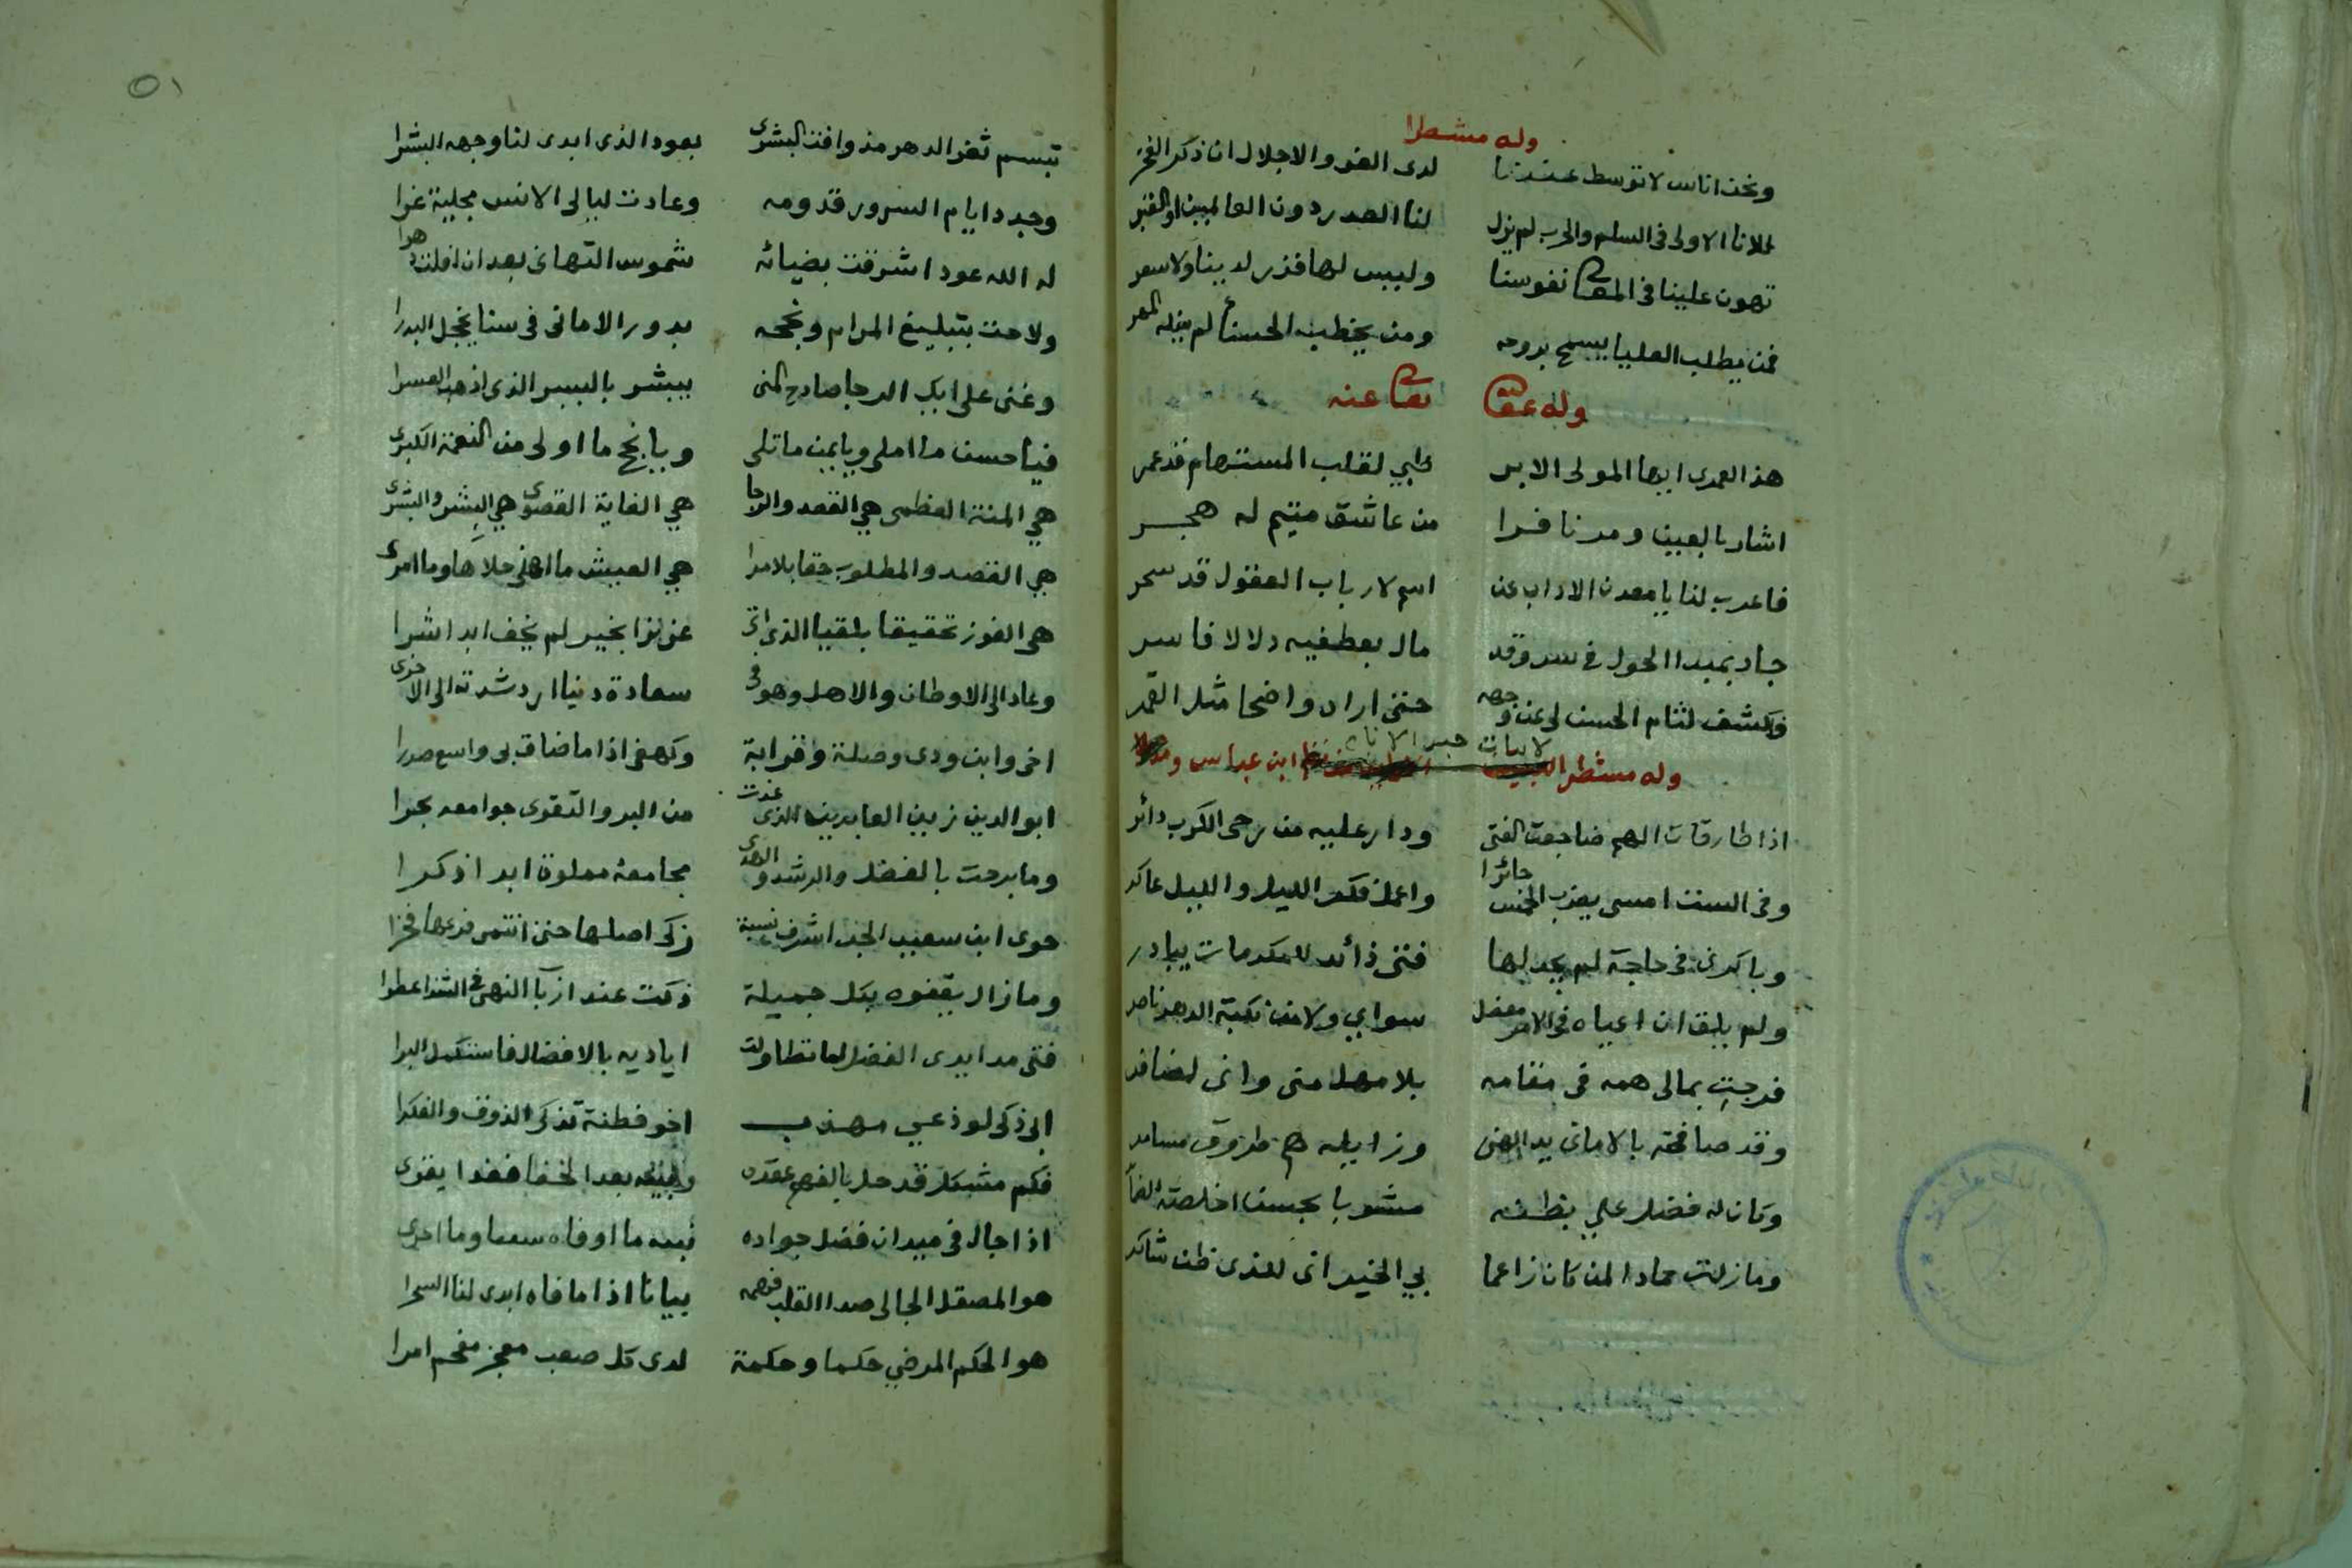 وله مشطرا
ونحن اناس لا توسط عندنا لدى العز والاجلال ان ذكر الفخر
لنا الصدر دون العالمين او القبر
تهون علينا في المعالى نفوسنا وليس لها قدر لدينا ولا سعر
فمن يطلب العليا يسمح بروحه ومن يخطب الحسناء لم يغله المهر
وله عفى تعالى عنه
هذا العمرى ايها المولى الابر لقلب المستهام قد عمر
اشار بالعين ومر نافرا من عاشق متيم له هجر
فاعرب لنا يا معدن الاداب عن اسم لارباب العقول قد سحر
جاد بمبدا الحول في سر وقد مال بعطفيه دلالا فاسر
فكشف لثام الحسن لي عن وجهه حتى اراه واضحا مثل القمر
وله مشطرا لابيات حبر الانام ابن عباس
اذا طارقات الهم ضاجعت الفتى ودار عليه من رحى الكرب دائر
وفى الست امسى يضرب الخمس حائرا واعمل فكر الليل والليل عاكر
وباكرنى في حاجة لم يجد لها فتى ذائد للمكرمات يبادر
ولم يلق ان اعياه في الامر معضل سواي ولا من نكبة الدهر ناصر
فرجت بمالى همه فى مقامه بلا مهل منى وانى لضافر
وقد صافحته بالامانى يد الهنى وزايله هم طروق مسامر
وكان له فضل علي بظنه مشوبا بحسن اخلصته
وما زلت حمادا لمن كان زاعما بي الخير انى للذى ظن شاكر
٥١
تبسم ثغر الدهر مذ وافت البشرى بعود الذى ابدى لنا وجهه البشرا
وجدد ايام السرور قدومه وعادت ليالى الانس مجلية غرا
له الله عودا اشرقت بضيائه شموس التهانى بعد ان افلت دهرا
ولاحت بتبليغ المرام ونجحه بدور الامانى فى سنا يخجل البدرا
وغنى على ايك الرجا صادح المنى يبشر باليسر الذى اذهب العسرا
فيا حسن ما املى ويا يمن ما تلى ويا نجح ما اولى من النعمة الكبرى
هي المنة العظمى هي القصد والرجا هي الغاية القصوى هي البشر والبشرى
هي القصد والمطلوب حقا بلا مرا هي العيش ما اهنى حلاها وما امرى
هى الفوز تحقيقا بلقيا الذى اتى عزيزا بخير لم يخف ابدا شرا
وعاد الى الاوطان والاهل وهو فى سعادة دنيا ارشدته الى الاخرى
اخى وابن ودى وصلة وقرابة وكهفى اذا ما ضاق بى واسع صدرا
ابو الدين زين العابدين الذى غدت من البر والتقوى جوامعه بحرا
وما برحت بالفضل والرشد والهدى مجامعه مملوة ابدا ذكرا
حوى ابن سعيد الجد اشرف نسبة زكى اصلها حتى انتمى فرعها فخرا
وما زال يقفوه بكل جميلة ذكت عند ارباب النهى فى الشذا عطرا
فتى مد ايدى الفضل لما تطاولت اياديه بالافضال فاستكمل البرا
ابى ذكى لوذعي مهذب اخو فطنة تذكى الذوق والفكرا
فكم مشكل قد حل بالفهم عقده بعد الخفا
اذا جال فى ميدان فضل جواده فيمه ما اوفاه سعيا وما اجرى
هو المصقل الجالى صدا القلب فهمه بيانا اذا ما فاه ابدى لنا السحرا
هو الحكم المرضي حكما وحكمة لدى كل صعب معجز مفحم امرا